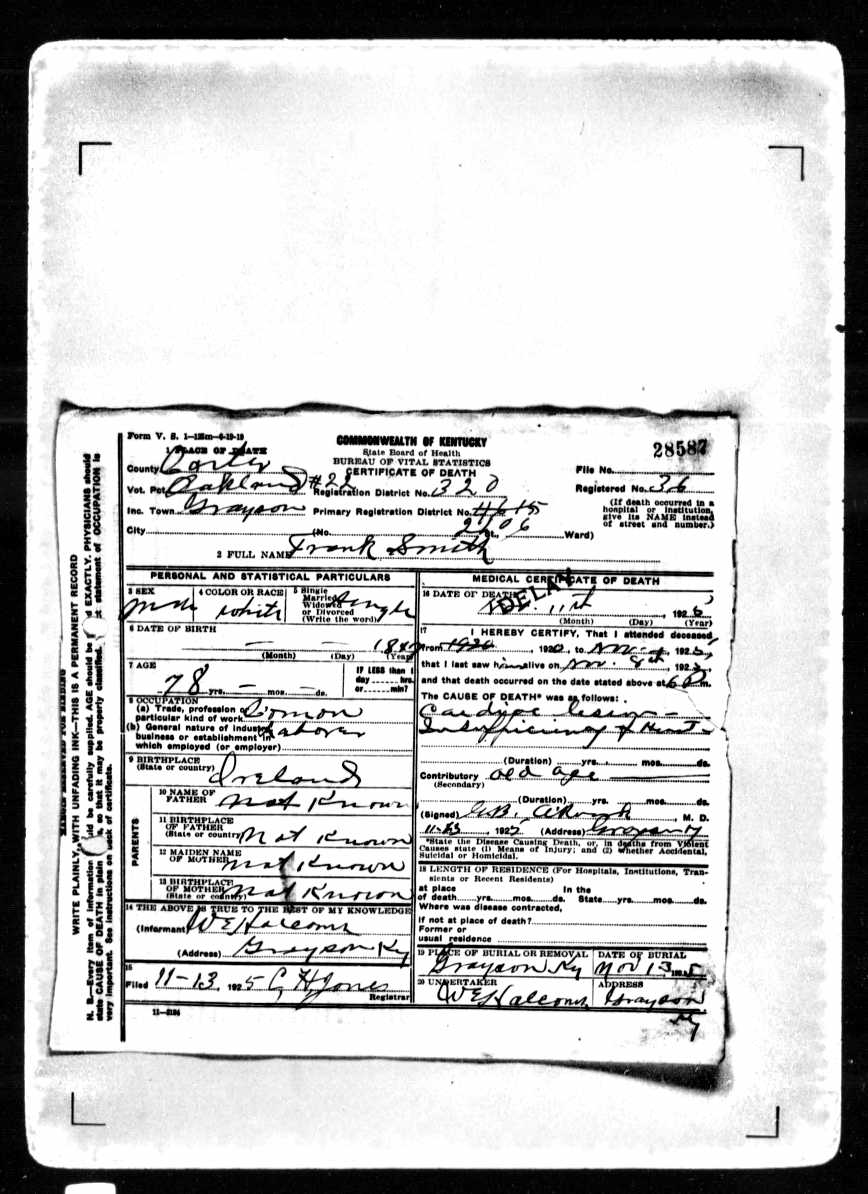 Form V. S. 1-125m-6-19-19
1 PLACE OF DEATH
COMMONWEALTH OF KENTUCKY
State Board of Health
BUREAU OF VITAL STATISTICS
CERTIFICATE OF DEATH
28587
County Carter
File No.
Vot. Pct. Oakland #22 Registration District No. 320 Registered No. 36
Inc. Town Grayson Primary Registration District No. 4615
2206
City (No. St., Ward)
(If death occurred in a
hospital or institution,
give its NAME instead
of street and number.)
2 FULL NAME Frank Smith
PERSONAL AND STATISTICAL PARTICULARS
3 SEX Male
4 COLOR OR RACE White
5 Single
Married
Widowed
or Divorced
(Write the word) Single
6 DATE OF BIRTH
(Month) (Day) (Year)
7 AGE
78 yrs. — mos. — ds.
IF LESS than 1
day hrs.
or min?
8 OCCUPATION
(a) Trade, profession or
particular kind of work
(b) General nature of industry
business or establishment in
which employed (or employer)
Labor
9 BIRTHPLACE
(State or country) Ireland
PARENTS
10 NAME OF
FATHER Not Known
11 BIRTHPLACE
OF FATHER
(State or country) Not Known
12 MAIDEN NAME
OF MOTHER Not Known
13 BIRTHPLACE
OF MOTHER
(State or country) Not Known
14 THE ABOVE IS TRUE TO THE BEST OF MY KNOWLEDGE
(Informant) W E Halcomb
(Address) Grayson Ky
15
Filed 11-13, 1925 C H Jones
Registrar
11-3184
MEDICAL CERTIFICATE OF DEATH
16 DATE OF DEATH
DELAY
11th
(Month) (Day) (Year)
17
I HEREBY CERTIFY, That I attended deceased
from 1920, 1920, to Nov, 192
that I last saw him alive on Nov. 9th, 192
and that death occurred on the date stated above at 6 P m.
The CAUSE OF DEATH* was as follows:
Cardiac lesion -
Insufficiency of Heart -
(Duration) yrs. mos. ds.
Contributory old age
(Secondary)
(Duration) yrs. mos. ds.
(Signed) , M. D.
11-13, 1925 (Address) Grayson Ky
*State the Disease Causing Death, or, in deaths from Violent
Causes state (1) Means of Injury; and (2) whether Accidental,
Suicidal or Homicidal.
18 LENGTH OF RESIDENCE (For Hospitals, Institutions, Tran-
sients or Recent Residents)
at place In the
of death yrs. mos. ds. State yrs. mos. ds.
Where was disease contracted,
if not at place of death?
Former or
usual residence
19 PLACE OF BURIAL OR REMOVAL
Grayson Ky
DATE OF BURIAL
Nov 13 1925
20 UNDERTAKER
W E Halcomb
ADDRESS
Grayson
Ky
MARGIN RESERVED FOR BINDING
WRITE PLAINLY, WITH UNFADING INK—THIS IS A PERMANENT RECORD
N. B.—Every item of information should be carefully supplied. AGE should be stated EXACTLY. PHYSICIANS should
state CAUSE OF DEATH in plain terms, so that it may be properly classified. Exact statement of OCCUPATION is
very important. See instructions on back of certificate.